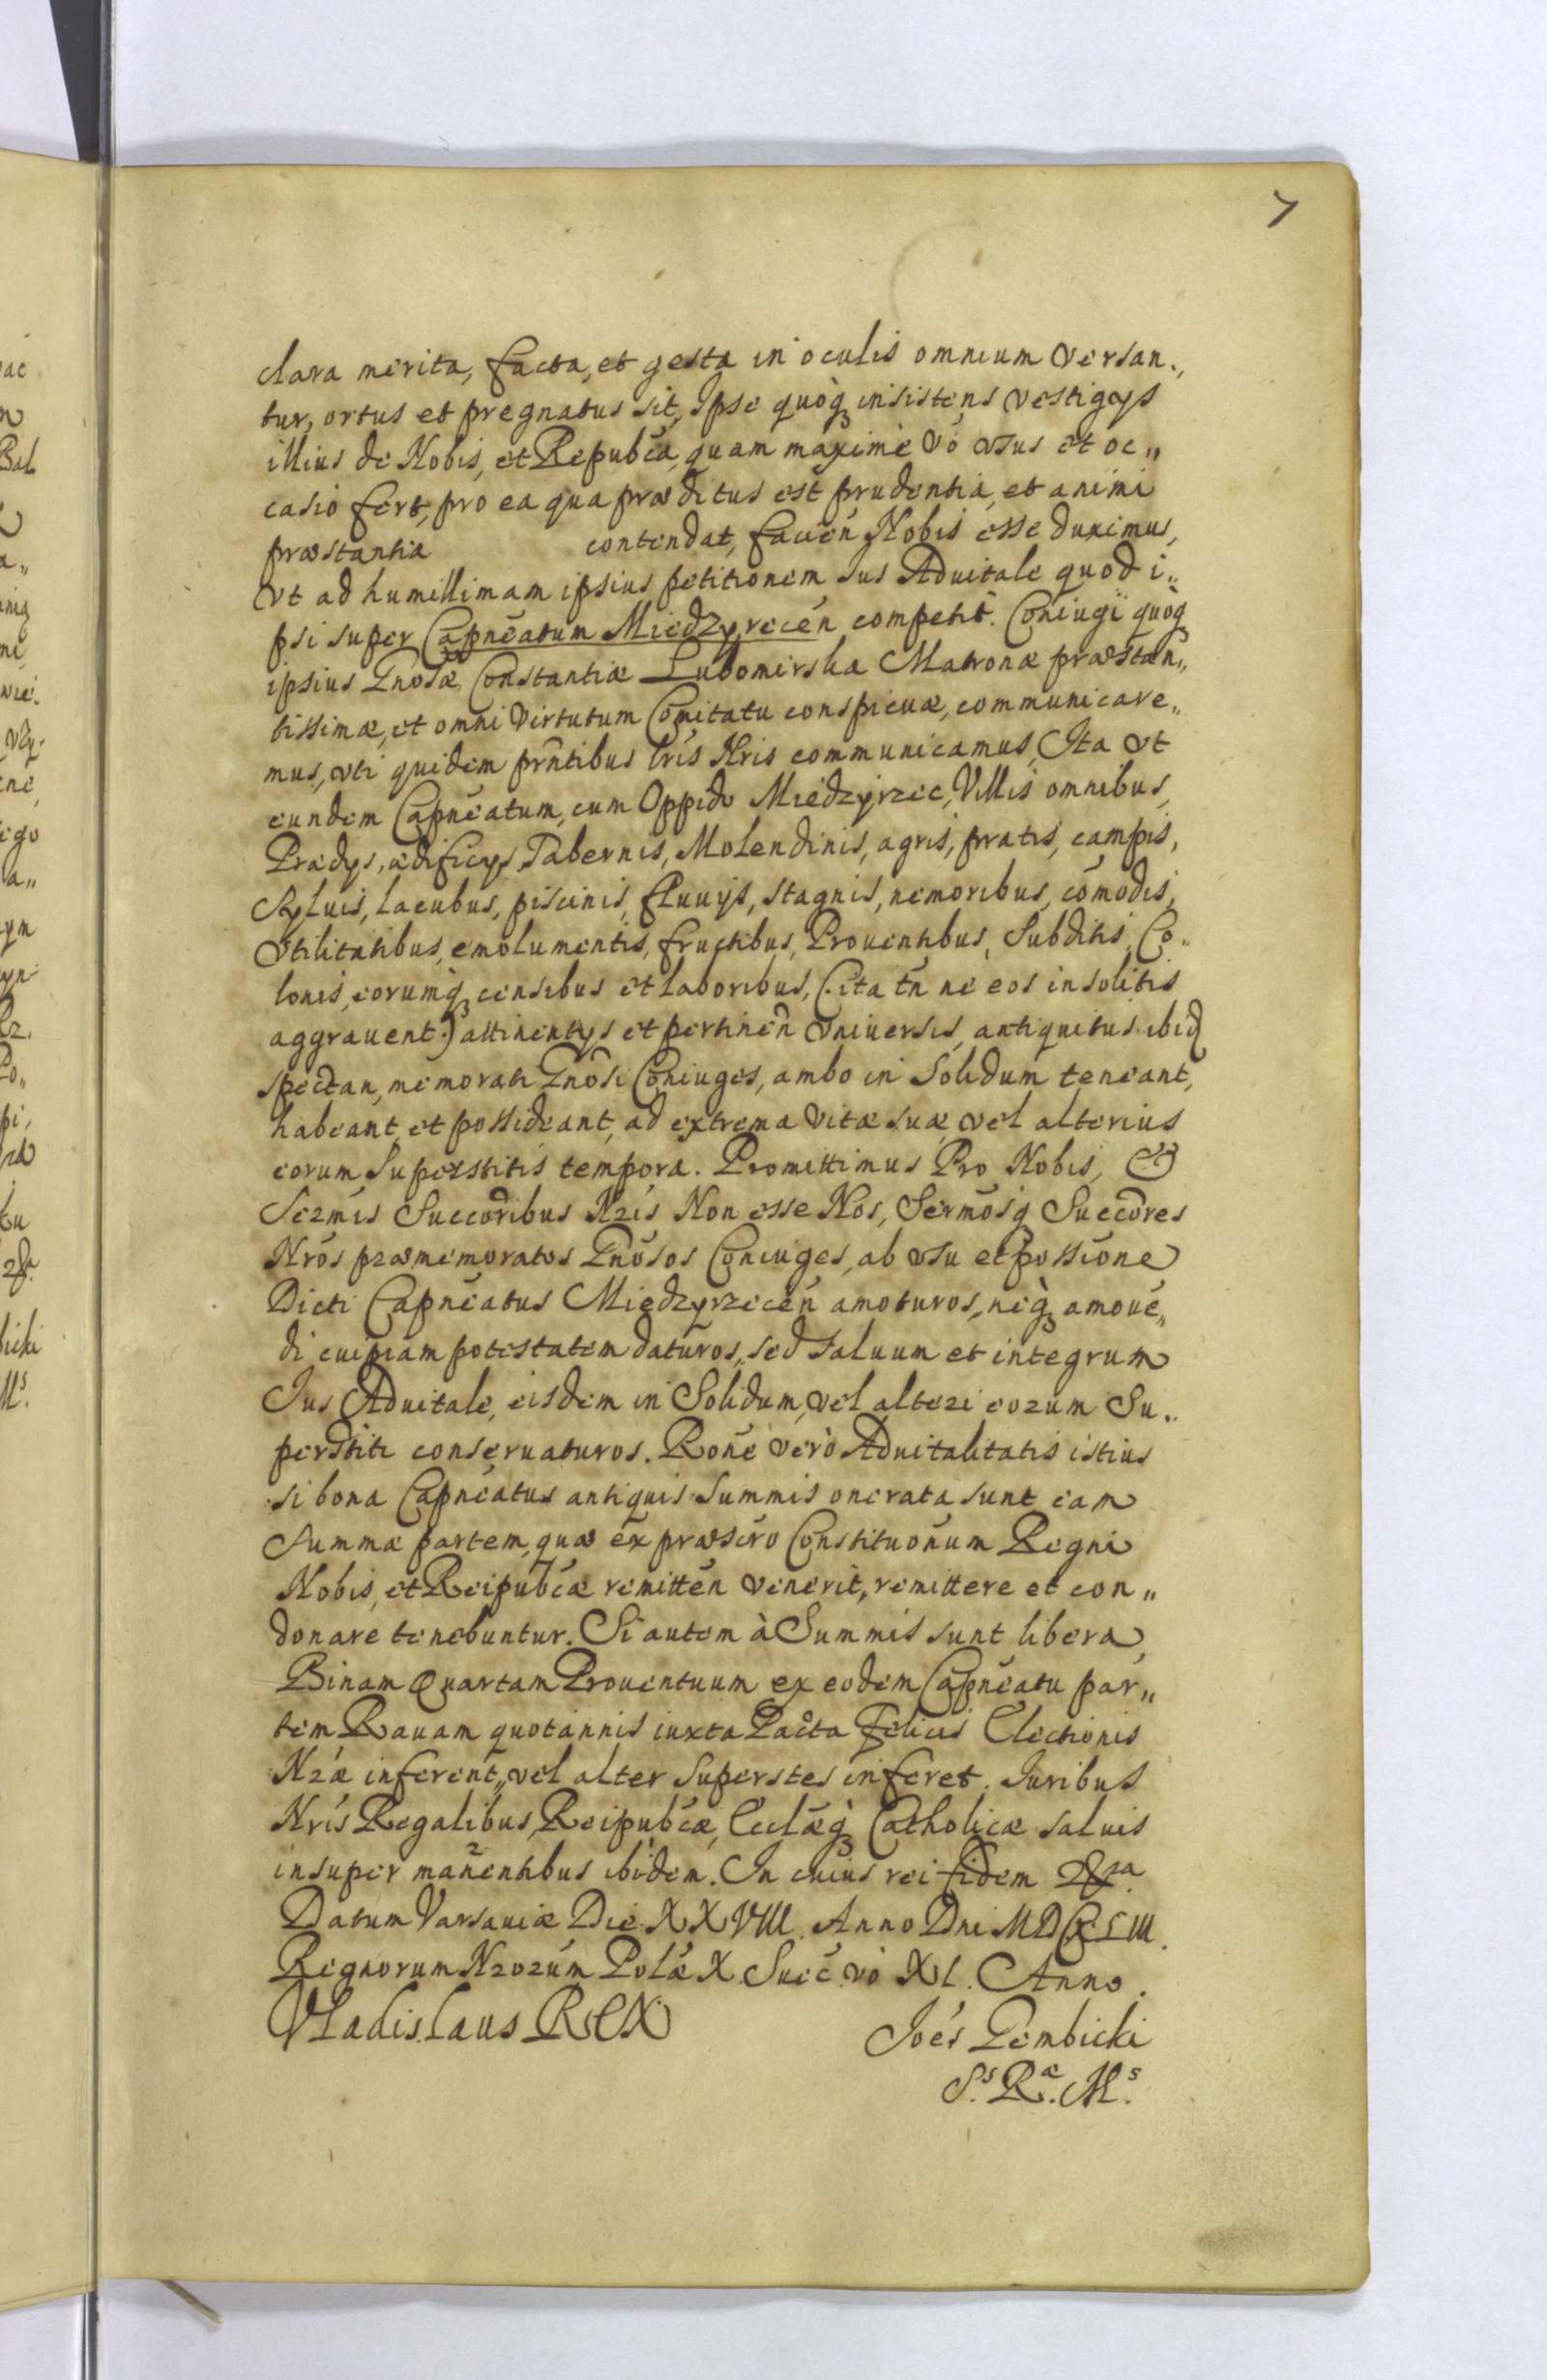 7
clara merita, facta, et gesta in oculis omnium versan„
tur, ortus et pregnatus sit, Ipse quoq₃ insistens vestigys
illius de Nobis, et Republ̃ca, quam maximè võ usus et oc„
casio fert, pro ea qua præditus est prudentia, et animi
præstantia contendat, facien̄ Nobis esse duximus,
Vt ad humillimam ipsius petitionem Jus Aduitale quod i„
psi super Capn̄eatum Miedzyrecen̄ competit. Coniugi quoq₃
ipsius Gn̄osæ Constantiæ Lubomirska Matronæ præstan„
tissimæ, et omni Virtutum Comitatu conspicuæ, communicare„
mus, vti quidem prn̄tibus lrīs Nris communicamus, Ita vt
eundem Capn̄eatum, cum Oppido Miedzyrzec, Villis omnibus,
Prædys, ædificys, Tabernis, Molendinis, agris, pratis, campis,
Syluis, lacubus, piscinis, fluuijs, stagnis, nemoribus, com̄odis,
Vtilitatibus, emolumentis, fructibus, Prouentibus, Subditis, Co„
lonis, eorumq₃ censibus et laboribus, (ita tn̄ ne eos insolitis
aggrauent.) attinentys et pertinen̄ Vniuersis, antiquitus ibid
spectan, memorati Gn̄osi Coniuges, ambo in Solidum teneant,
habeant, et possideant, ad extrema Vitæ suæ vel alterius
eorum Superstitis tempora. Promittimus Pro Nobis, et
Sermīs Succoribus Nrīs Non esse Nos, Sermōsq Succores
Nrōs præmemoratos Gn̄osos Coniuges, ab vsu et possione
Dicti Capn̄eatus Miedzyrzecen̄ amoturos, neq₃ amouē„
di cuipiam potestatem daturos, sed saluum et integrum
Jus Aduitale, eisdem in Solidum, vel alteri eorum Su„
perstiti conseruaturos. Rone verò Aduitalitatis istius
si bona Capn̄eatus antiquis Summis onerata sunt eam
Summæ partem, quæ ex præscro Constituōnum Regni
Nobis, et Reipubcæ remitten̄ venerit, remittere et con„
donare tenebuntur. Si autem à Summis sunt libera,
Binam Quartam Prouentuum ex eodem Capn̄eatu par„
tem Rauam quotannis iuxta Pacta Felicis Electionis
Nræ inferent, vel alter Superstes inferet. Juribus
Nrīs Regalibus, Reipubcæ, Ecclæq₃ Catholicæ saluis
insuper manentibus ibidem. In cuius rei fidem
Datum Varsauiæ Die XXVIII. Anno Dni
Regnorum Nrorum Polæ X Suec. vò XI. Anno.
Vladislaus REX
Joēs Gembicki
S.ˢ R.ᵃᵉ M.ˢ